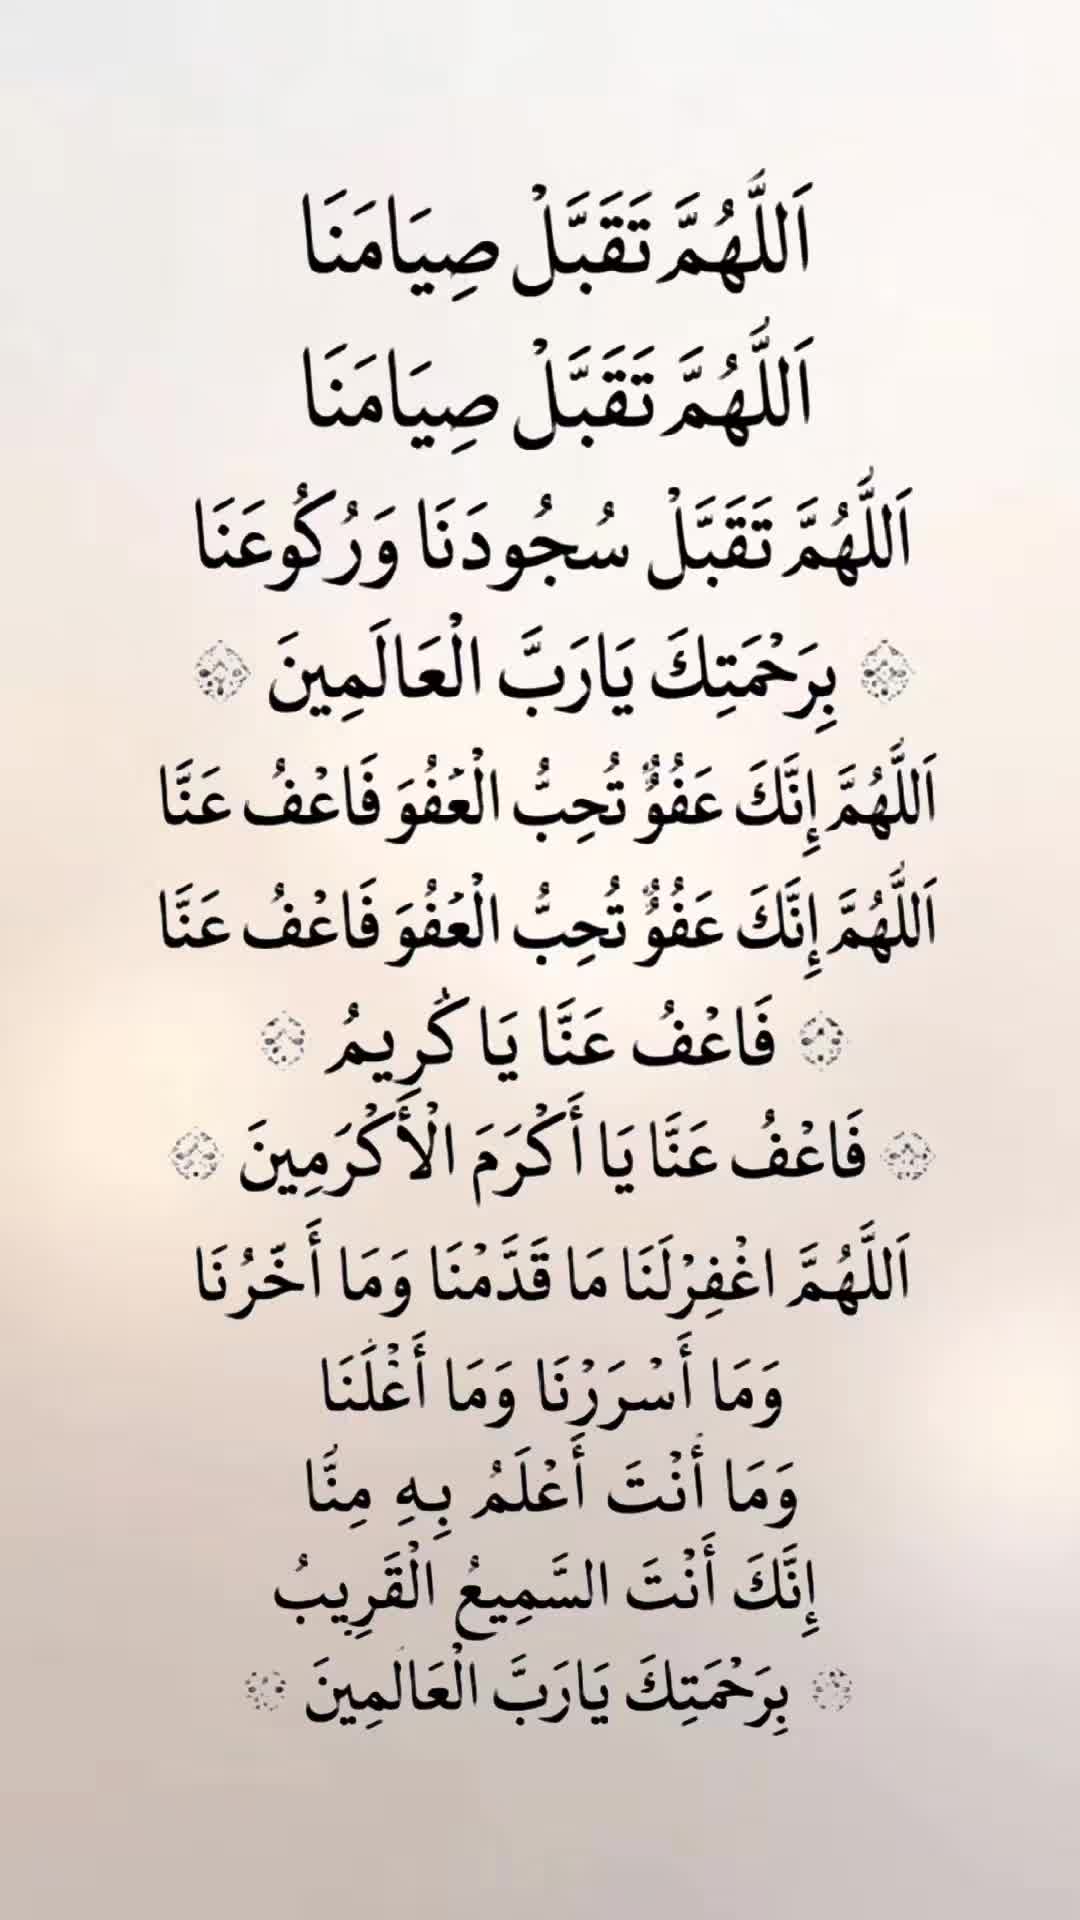 اَللَّهُمَّ تَقَبَّلْ صِيَامَنَا
اَللَّهُمَّ تَقَبَّلْ صِيَامَنَا
اَللَّهُمَّ تَقَبَّلْ سُجُودَنَا وَرُكُوعَنَا
بِرَحْمَتِكَ يَارَبَّ الْعَالَمِينَ
اَللَّهُمَّ إِنَّكَ عَفُوٌّ تُحِبُّ الْعَفْوَ فَاعْفُ عَنَّا
اَللَّهُمَّ إِنَّكَ عَفُوٌّ تُحِبُّ الْعَفْوَ فَاعْفُ عَنَّا
فَاعْفُ عَنَّا يَا كَرِيمُ
فَاعْفُ عَنَّا يَا أَكْرَمَ الْأَكْرَمِينَ
اَللَّهُمَّ اغْفِرْلَنَا مَا قَدَّمْنَا وَمَا أَخَّرْنَا
وَمَا أَسْرَرْنَا وَمَا أَعْلَنَا
وَمَا أَنْتَ أَعْلَمُ بِهِ مِنَّا
إِنَّكَ أَنْتَ السَّمِيعُ الْقَرِيبُ
بِرَحْمَتِكَ يَارَبَّ الْعَالَمِينَ